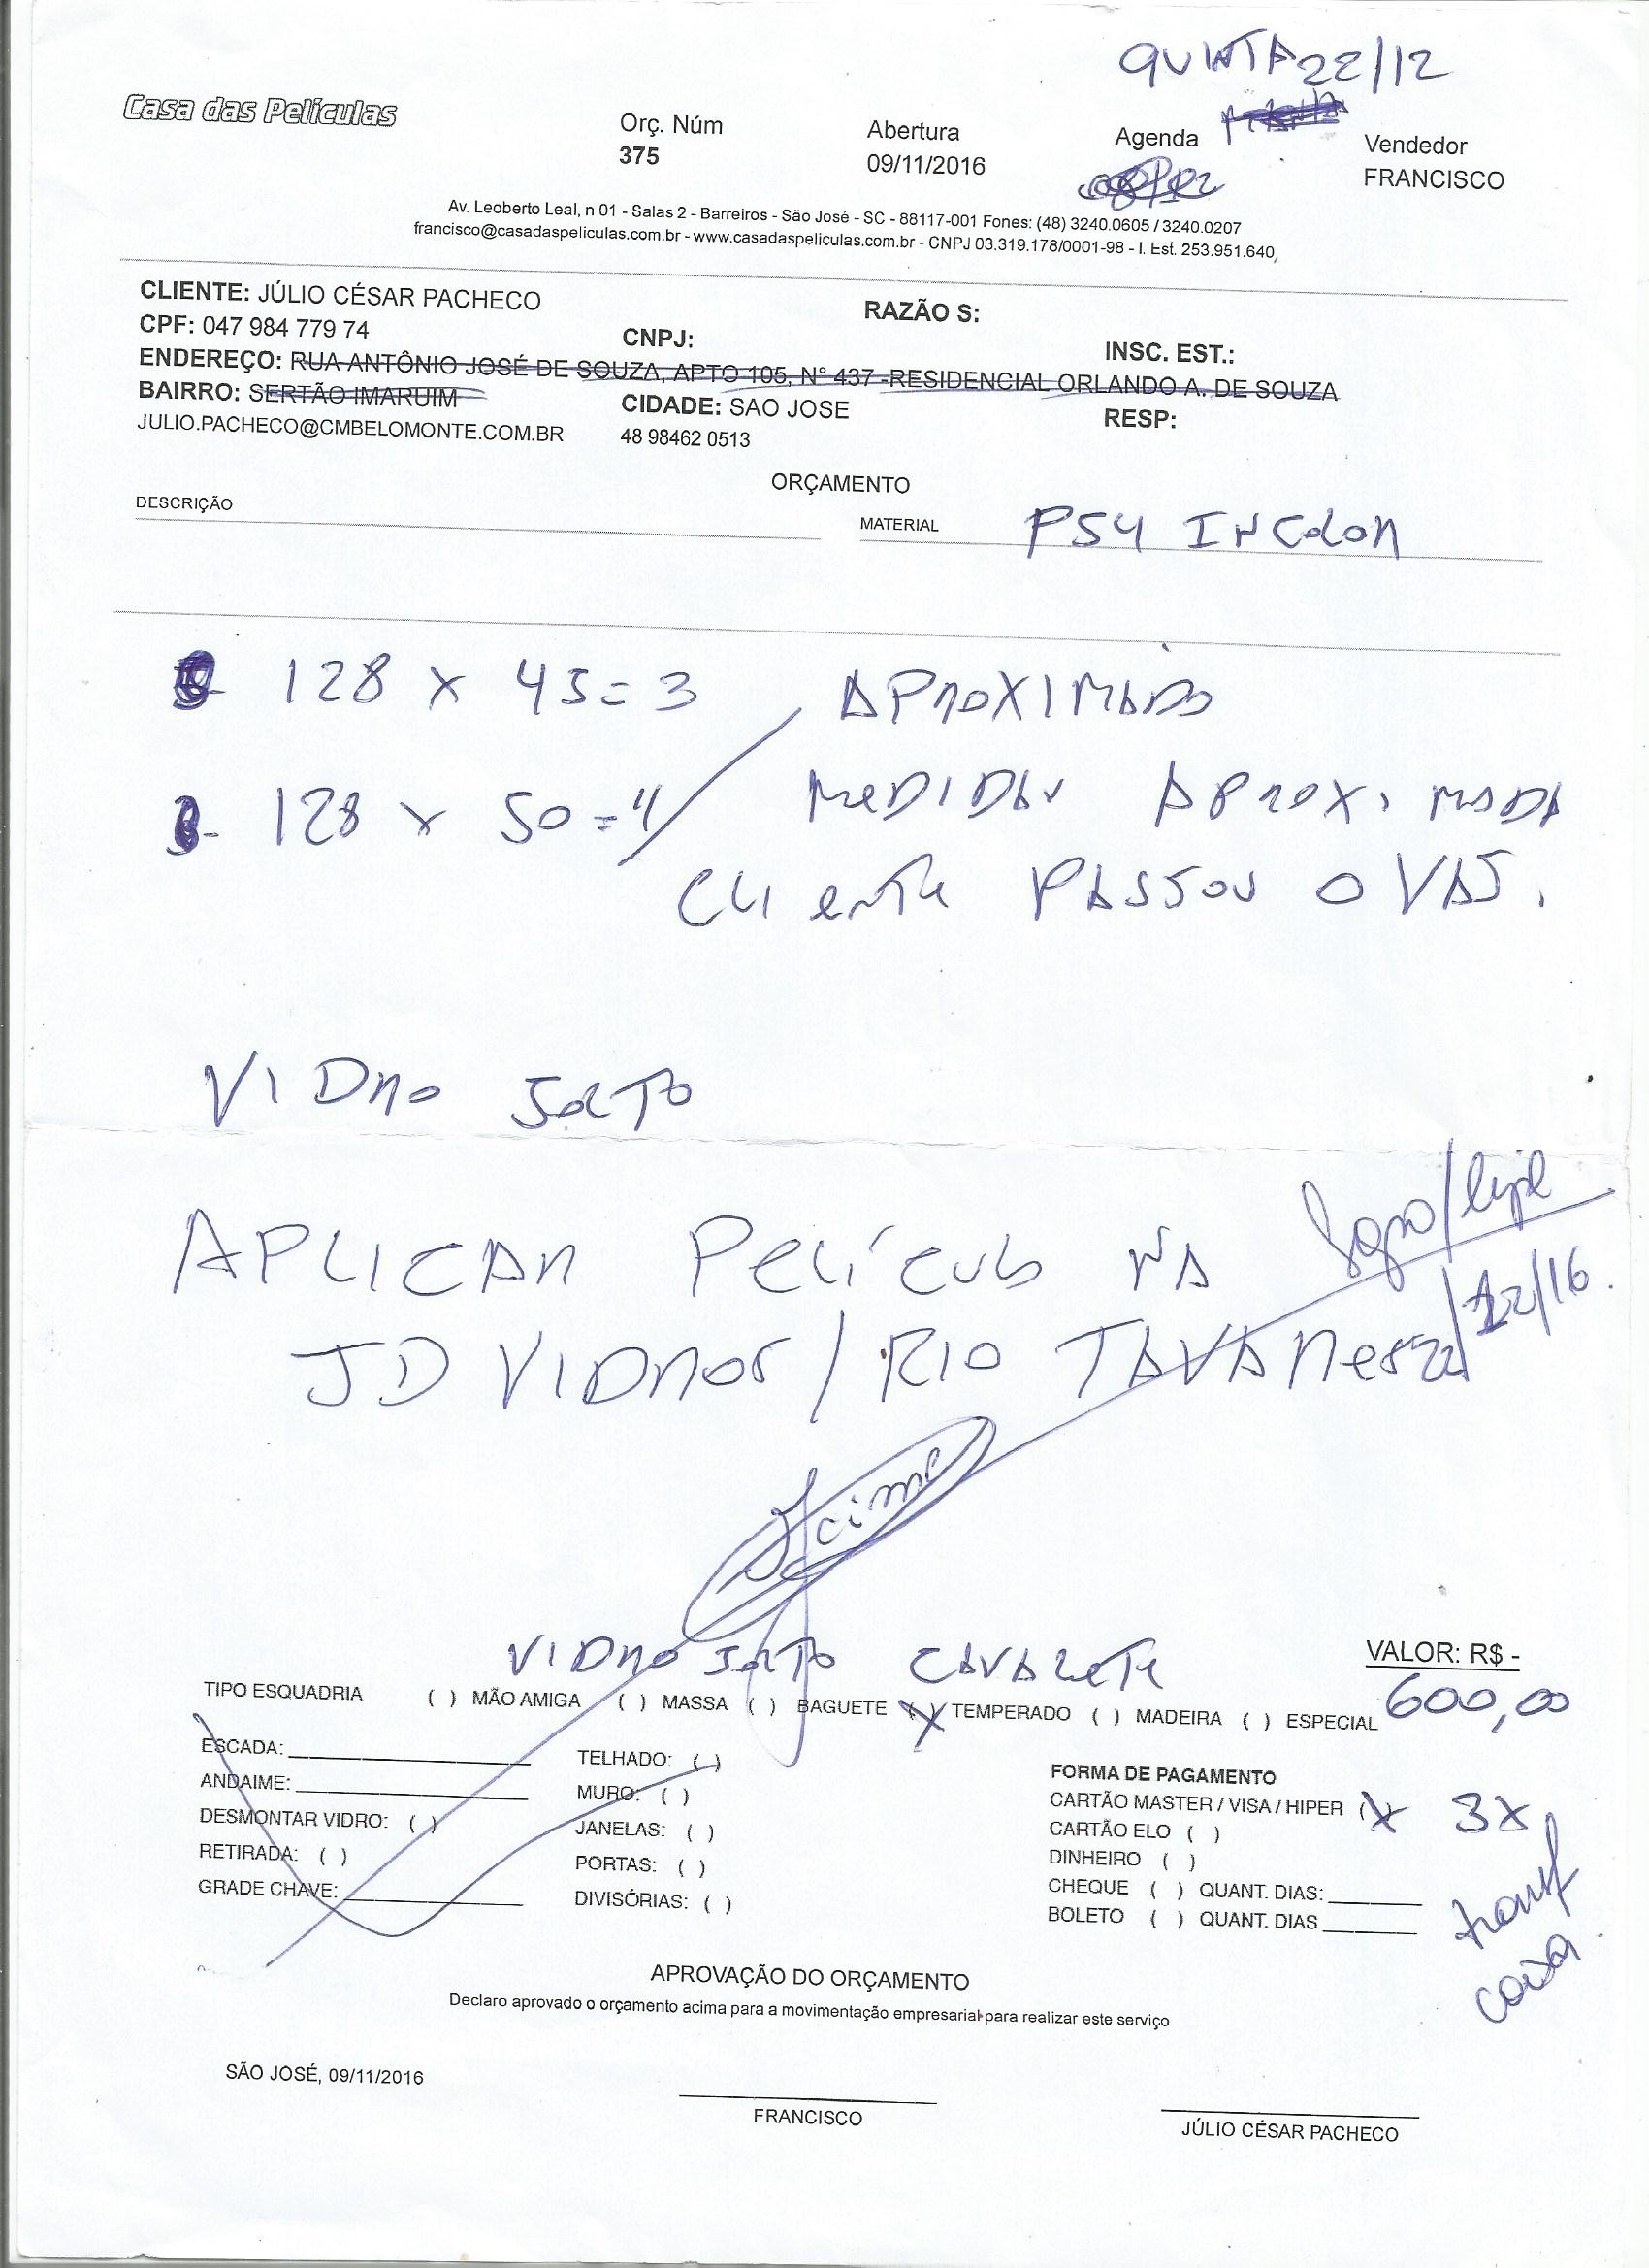 QUINTA 22/12
Casa das Películas
Orç. Núm
375
Abertura
09/11/2016
Agenda
Vendedor
FRANCISCO
Av. Leoberto Leal, n 01 - Salas 2 - Barreiros - São José - SC - 88117-001 Fones: (48) 3240.0605 / 3240.0207
francisco@casadaspeliculas.com.br - www.casadaspeliculas.com.br - CNPJ 03.319.178/0001-98 - I. Est. 253.951.640,
CLIENTE: JÚLIO CÉSAR PACHECO
RAZÃO S:
CPF: 047 984 779 74
CNPJ:
INSC. EST.:
ENDEREÇO: RUA ANTÔNIO JOSÉ DE SOUZA, APTO 105, N° 437 -RESIDENCIAL ORLANDO A. DE SOUZA
BAIRRO: SERTÃO IMARUIM
CIDADE: SAO JOSE
RESP:
JULIO.PACHECO@CMBELOMONTE.COM.BR
48 98462 0513
ORÇAMENTO
DESCRIÇÃO
MATERIAL PS4 INCOLOR
128 x 45 = 3 APROXIMADO
128 x 50 = 4 / MEDIDAS APROXIMADA
CLIENTE PASSOU O VAS.
VIDRO JATO
APLICAR PELÍCULA NA
JD VIDROS / RIO TAVARES
22/12/16.
VIDRO JATO CAVALETE
VALOR: R$ -
600,00
TIPO ESQUADRIA ( ) MÃO AMIGA ( ) MASSA ( ) BAGUETE (X) TEMPERADO ( ) MADEIRA ( ) ESPECIAL
ESCADA:
ANDAIME:
DESMONTAR VIDRO: ( )
RETIRADA: ( )
GRADE CHAVE:
TELHADO: ( )
MURO: ( )
JANELAS: ( )
PORTAS: ( )
DIVISÓRIAS: ( )
FORMA DE PAGAMENTO
CARTÃO MASTER / VISA / HIPER (X) 3X
CARTÃO ELO ( )
DINHEIRO ( )
CHEQUE ( ) QUANT. DIAS:
BOLETO ( ) QUANT. DIAS
transf
caixa.
APROVAÇÃO DO ORÇAMENTO
Declaro aprovado o orçamento acima para a movimentação empresarial para realizar este serviço
SÃO JOSÉ, 09/11/2016
FRANCISCO
JÚLIO CÉSAR PACHECO